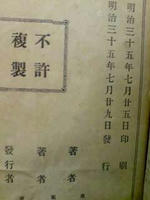 明治三十五年七月廿五日印刷
明治三十五年七月廿九日發行
不許
複製
著者
著者
發行者